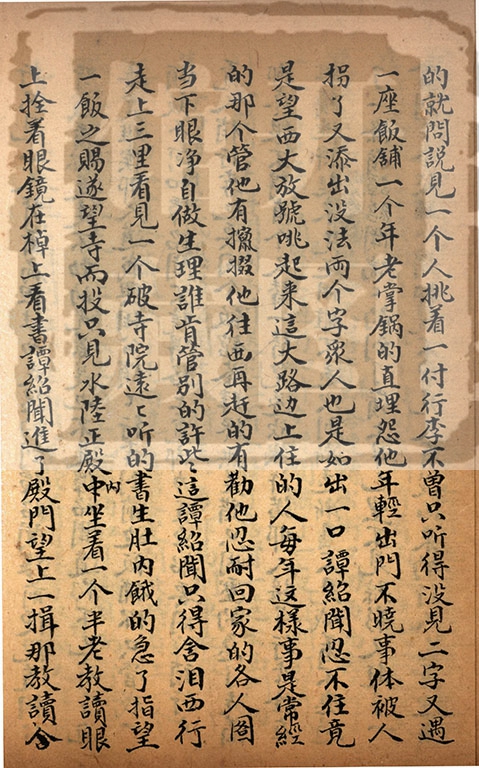 的就問説見一个人挑着一付行李不曾只听得没見二字又遇
一座飯舖一个年老掌锅的直埋怨他年輕出門不曉事体被人
拐了又添出没法両个字衆人也是如出一口譚紹聞忍不住竟
是望西大放號咷起来這大路边上住的人每年这樣事是常經
的那个管他有攛掇他往西再赶的有勸他忍耐回家的各人圏
当下眼净自做生理誰肯管別的許些這譚紹聞只得含泪西行
走上三里看見一个破寺院遠〻听的書生肚内餓的急了指望
一飯之賜遂望寺而投只見水陸正殿中内坐着一个半老教讀眼
上拴着眼鏡在棹上看書譚紹聞進了殿門望上一揖那教讀